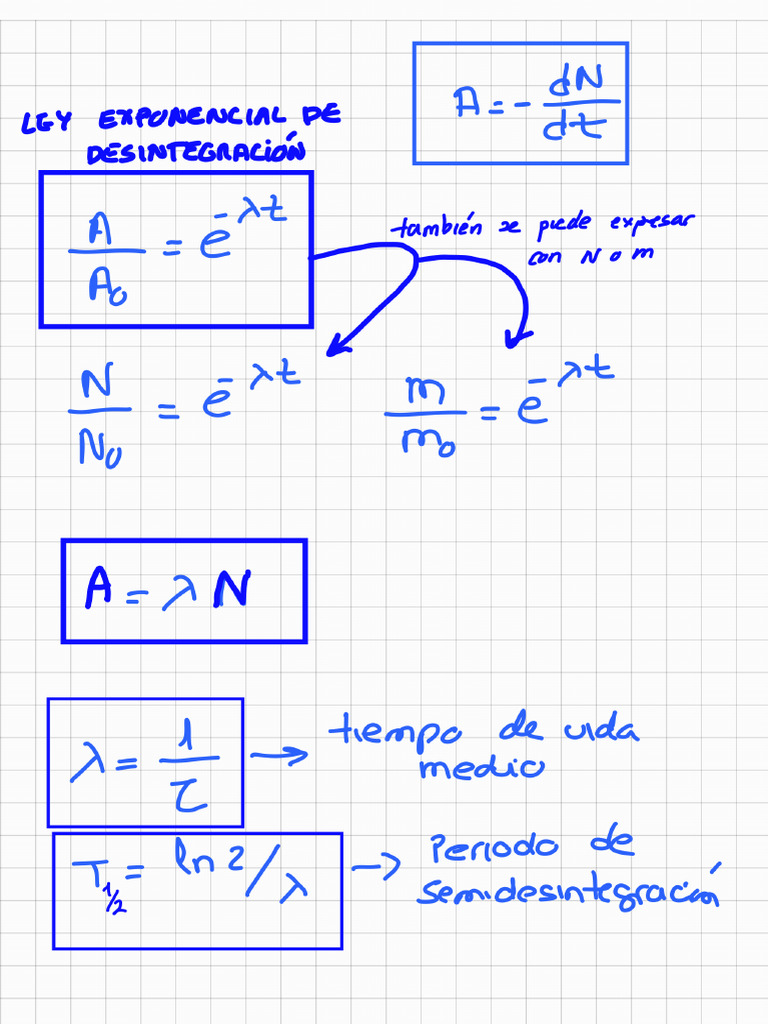 A = - dN/dt
LEY EXPONENCIAL DE
DESINTEGRACIÓN
A/A₀ = e^-λt
también se puede expresar
con N o m
N/N₀ = e^-λt
m/m₀ = e^-λt
A = λ N
λ = 1/τ → tiempo de vida
medio
T₁/₂ = ln 2/λ → Periodo de
semidesintegración